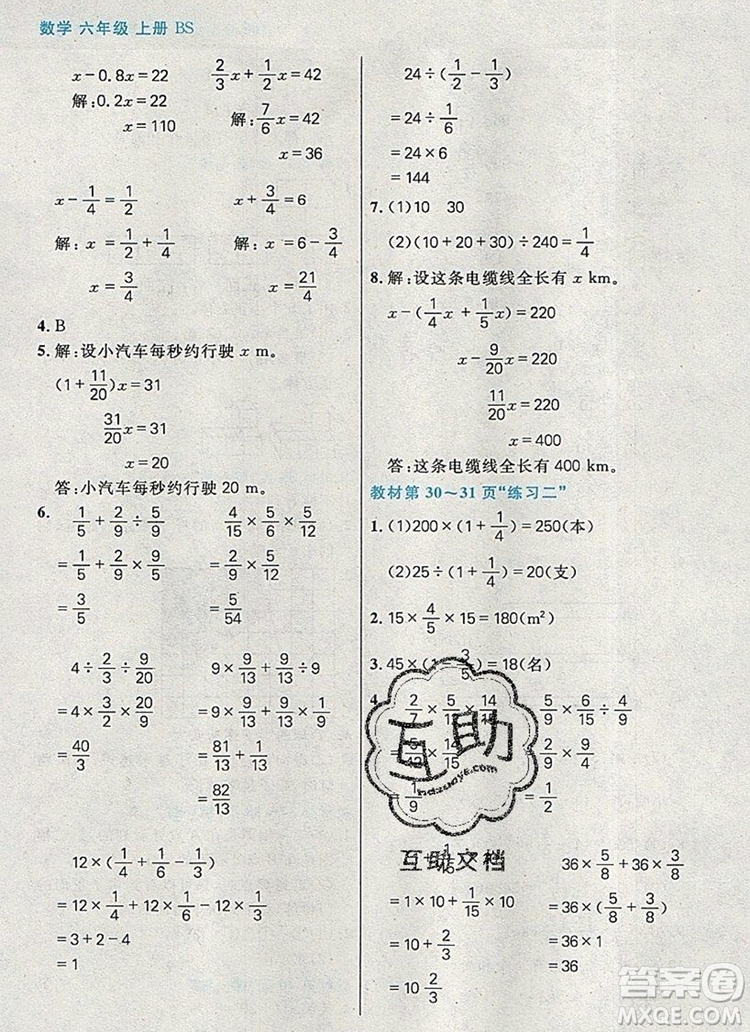 数学 六年级 上册 BS
x-0.8x=22
解:0.2x=22
x=110
2/3x+1/2x=42
解:7/6x=42
x=36
x-1/4=1/2
解:x=1/2+1/4
x=3/4
x+3/4=6
解:x=6-3/4
x=21/4
4. B
5. 解:设小汽车每秒约行驶 x m。
(1+11/20)x=31
31/20x=31
x=20
答:小汽车每秒约行驶 20 m。
6.
1/5÷2/9÷5/9
=1/5×9/2×9/5
4/15×5/12×5/6
=1/9×5/6
=5/54
4÷2/3÷9/20
=4×3/2×20/9
=40/3
9×9/13+9/13÷9
=9×9/13+9/13×1/9
=81/13+1/13
=82/13
12×(1/4+1/6-1/3)
=12×1/4+12×1/6-12×1/3
=3+2-4
=1
24÷(1/2-1/3)
=24÷1/6
=24×6
=144
7. (1)10 30
(2)(10+20+30)÷240=1/4
8. 解:设这条电缆线全长有 x km。
x-(1/4x+1/5x)=220
x-9/20x=220
11/20x=220
x=400
答:这条电缆线全长有 400 km。
教材第 30～31 页“练习二”
1. (1)200×(1+1/4)=250(本)
(2)25÷(1+1/4)=20(支)
2. 15×4/5×15=180(m²)
3. 45×(1-3/5)=18(名)
2/7×5/12×14/15
=1/9
×6/15÷4/9
=1×10+1/15×10
=10+2/3
=10 2/3
36×5/8+36×3/8
=36×(5/8+3/8)
=36×1
=36
互助
hdzuoye.com
互助文档
答案圈
MXQE.COM